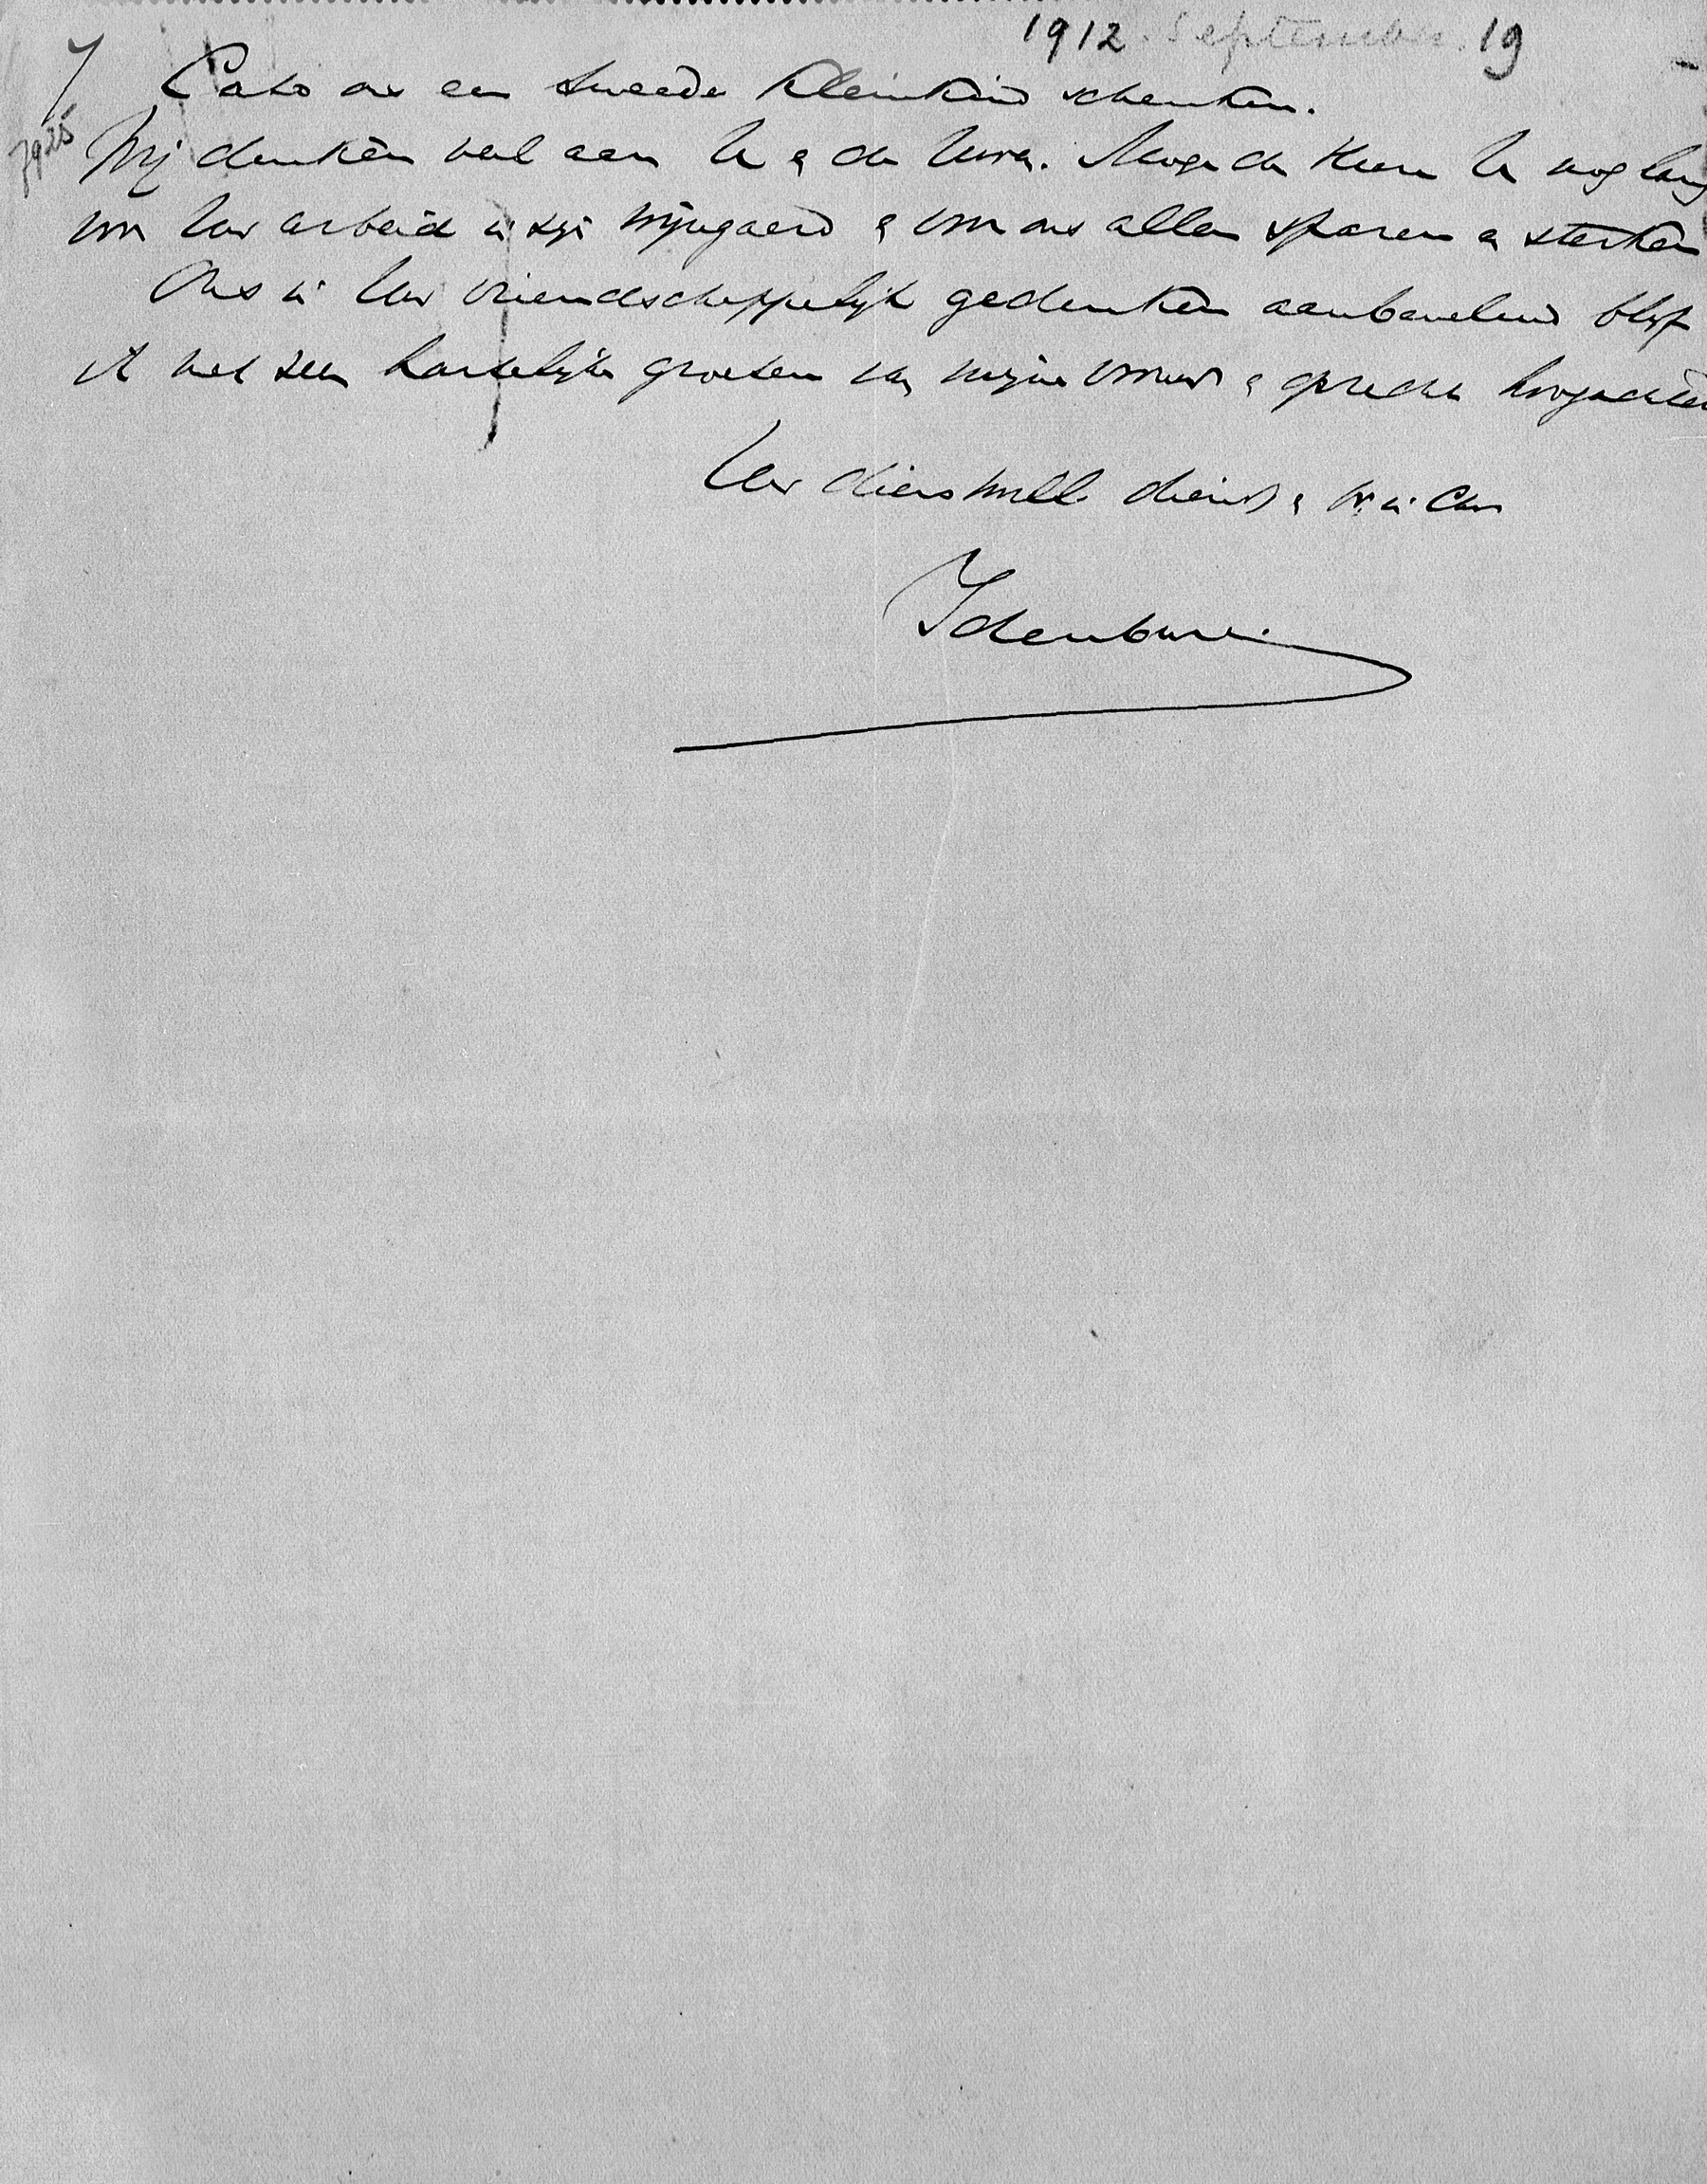 1912 September 19
7
7925
Cato ons een tweede kleinkind schenken.
Wij denken veel aan U & de Uwen. Moge de Heere U nog lang
voor Uw arbeid in zijn wijngaard & voor ons allen sparen en sterken
Ons in Uw vriendschappelijk gedenken aanbevelend blijf
ik met zeer hartelijke groeten van mijne vrouw & oprechte hoogachten
Uw dienstwill. dienr & br. in Chr.
Idenburg.